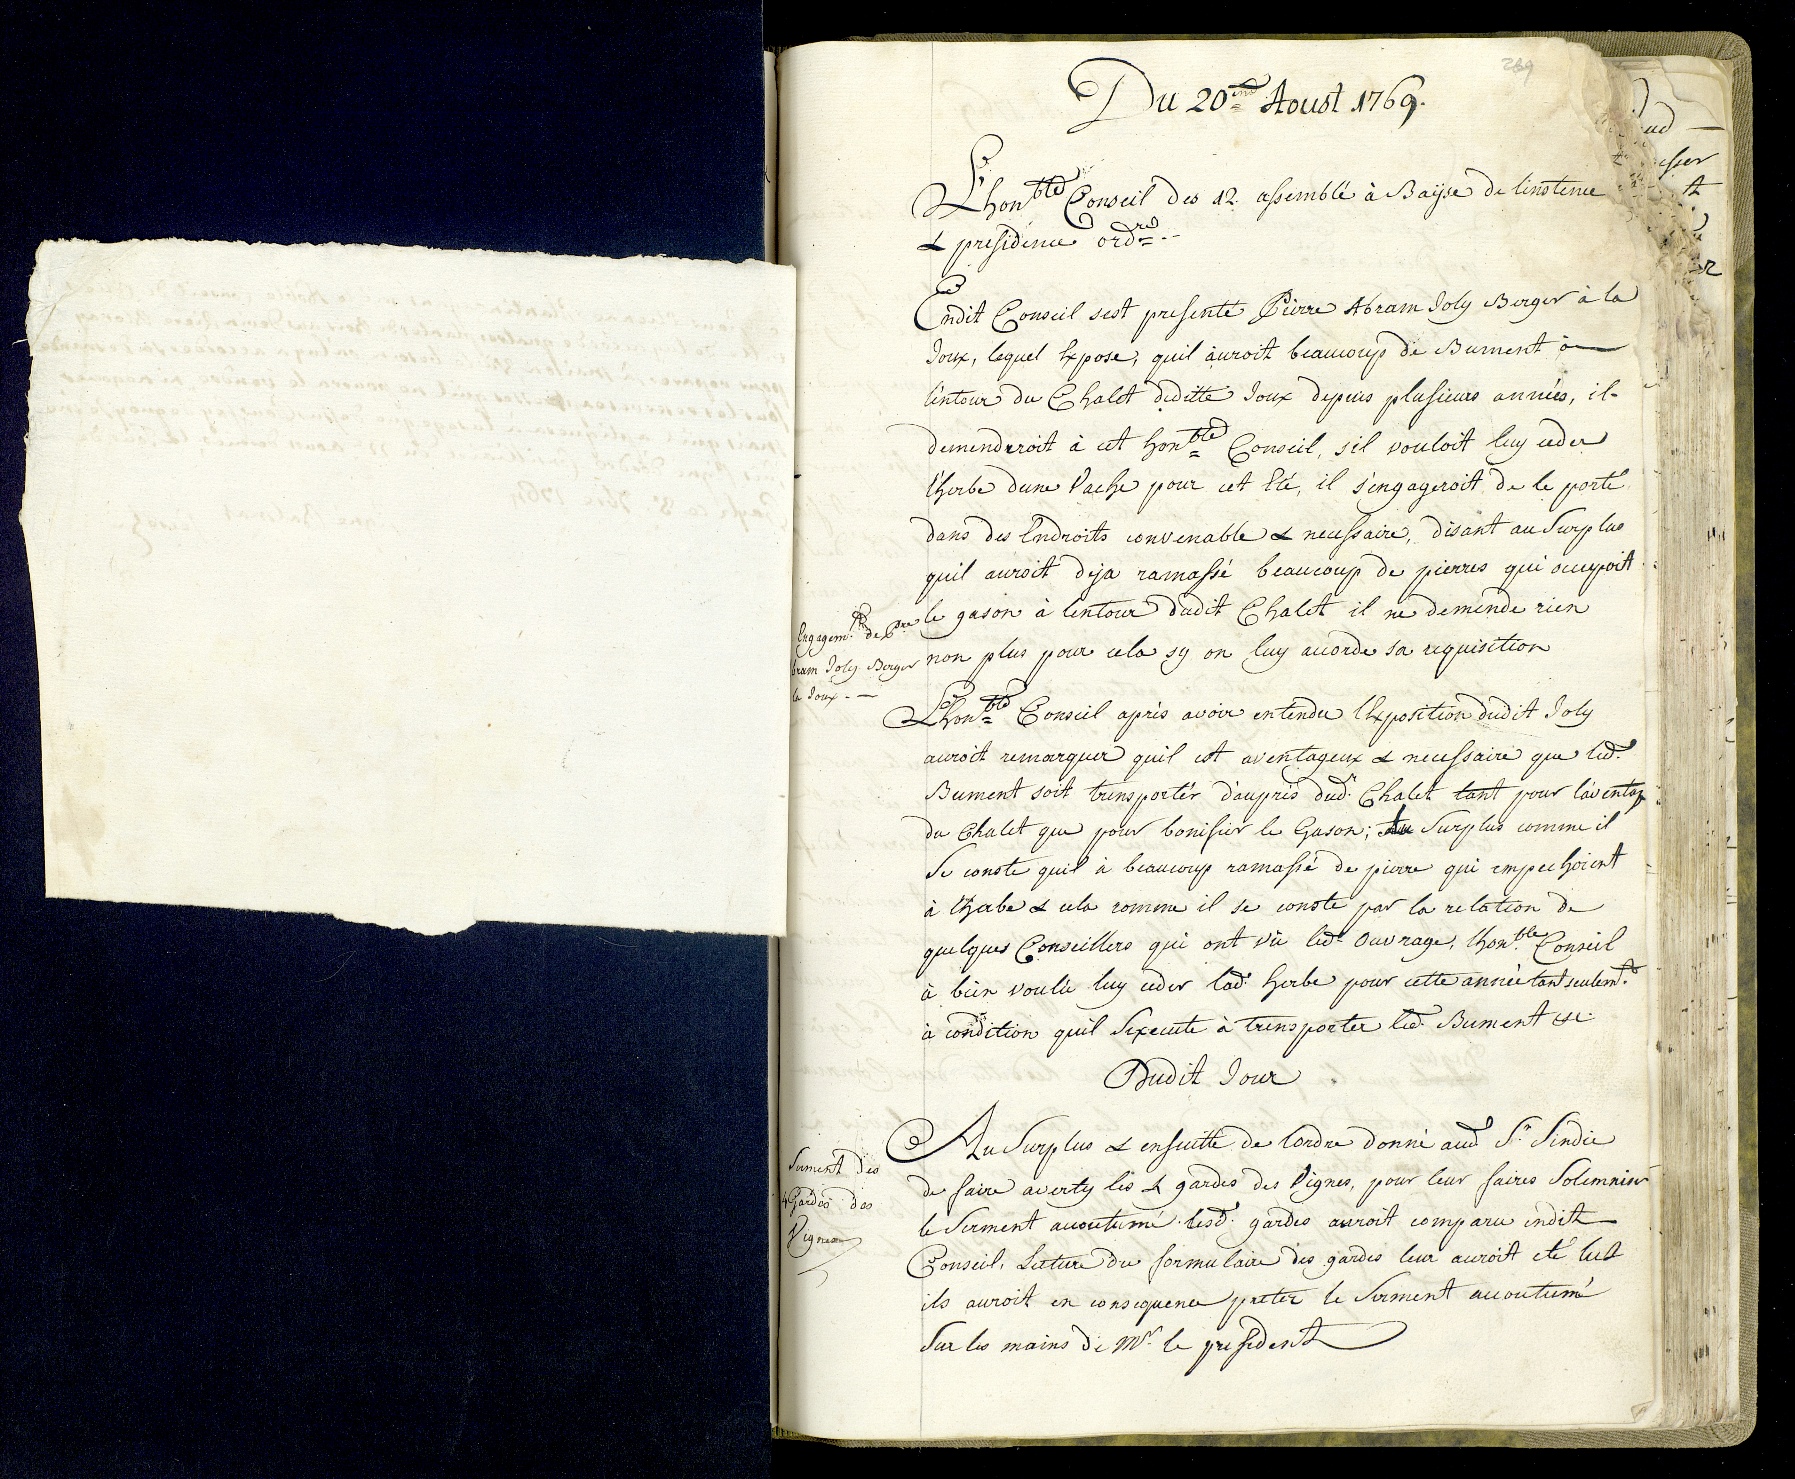 269
Du 20.me Aoust 1769.
L'hon.ble Conseil des 12. assemblé à Bayse de linstence
& presidence ord.re
Endit Conseil sest presenté Pierre Abram Joly Berger à la
Joux, lequel Expose, quil auroit beaucoup de Bument à
lentour du Chalet deditte Joux depuis plusieurs années, il
demenderoit à cet hon.ble Conseil, sil vouloit luy ceder
l'herbe dune Vache pour cet Eté, il s'engageroit de le porté
dans des Endroits convenable & necessaire, disant au Surplus
quil auroit deja ramassé beaucoup de pierres qui occupoit
le gason à lentour dudit Chalet il ne demende rien
non plus pour cela sy on luy accorde sa requisition
Engagem.t de P.re
bram Joly Berger
la Joux
L'hon.ble Conseil après avoir entendu l'Exposition dudit Joly
auroit remarquer quil est aventageux & necessaire que led.
Bument soit trensporter d'auprès dud. Chalet tant pour l'aventag
du Chalet que pour bonifier le Gason; Au Surplus comme il
Se conste quil à beaucoup ramassé de pierre qui empechoient
à l'herbe & cela comme il se conste par la relation de
quelques Conseillers qui ont vû led. Ouvrage, l'hon.ble Conseil
à bien voulu luy ceder lad. herbe pour cette année tant seulem.t
à condition quil S'execute à trensporter led. Bument &c.
Dudit Jour
Au Surplus & ensuitte de lordre donné aud S.r Sindic
de faire averty les 4 gardes des Vignes, pour leur faires Solemnier
le Serment accoutumé lesd. gardes auroit comparu endit
Conseil, Lecture du formulaire des gardes leur auroit eté lut
ils auroit en consequence preter le Serment accoutumé
Sur les mains de Mr. le president
Serment des
4 Gardes des
Vignes